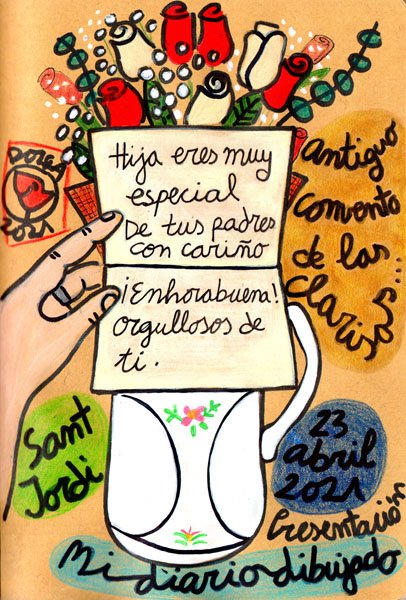 Hija eres muy
especial
De tus padres
con cariño
¡Enhorabuena!
orgullosos de
ti.
2021
Antiguo
Convento
de las...
Clarisas
Sant
Jordi
23
abril
2021
Presentación
Mi diario dibujado